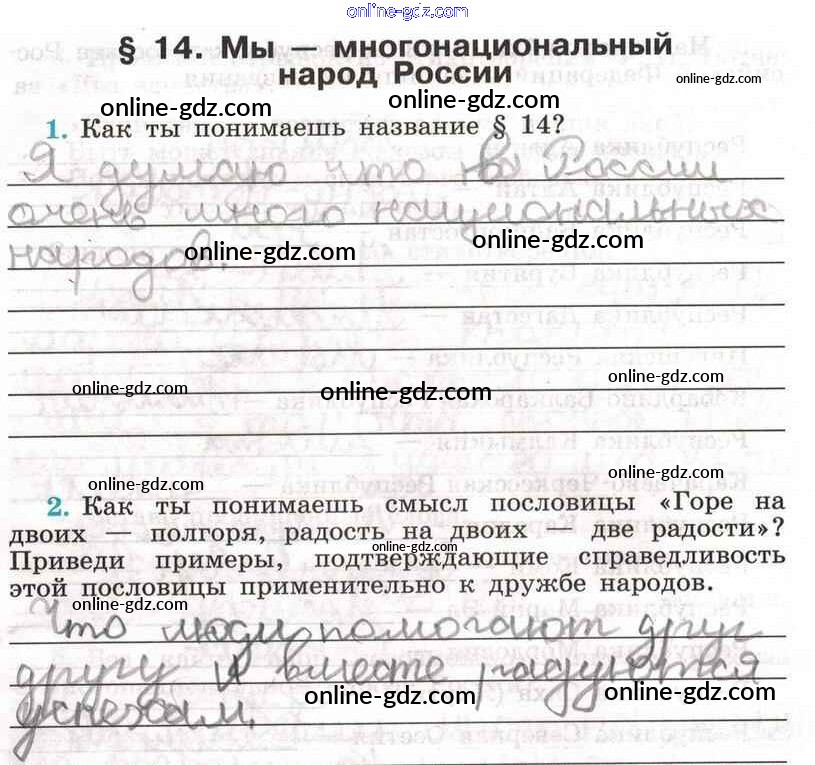 online-gdz.com
§ 14. Мы — многонациональный
народ России
online-gdz.com
online-gdz.com
online-gdz.com
1. Как ты понимаешь название § 14?
Я думаю что в России
очень много национальных
народов.
online-gdz.com
online-gdz.com
online-gdz.com
online-gdz.com
online-gdz.com
online-gdz.com
online-gdz.com
2. Как ты понимаешь смысл пословицы «Горе на
двоих — полгоря, радость на двоих — две радости»?
online-gdz.com
Приведи примеры, подтверждающие справедливость
этой пословицы применительно к дружбе народов.
online-gdz.com
Что люди помогают друг
другу и вместе радуются
успехам.
online-gdz.com
online-gdz.com